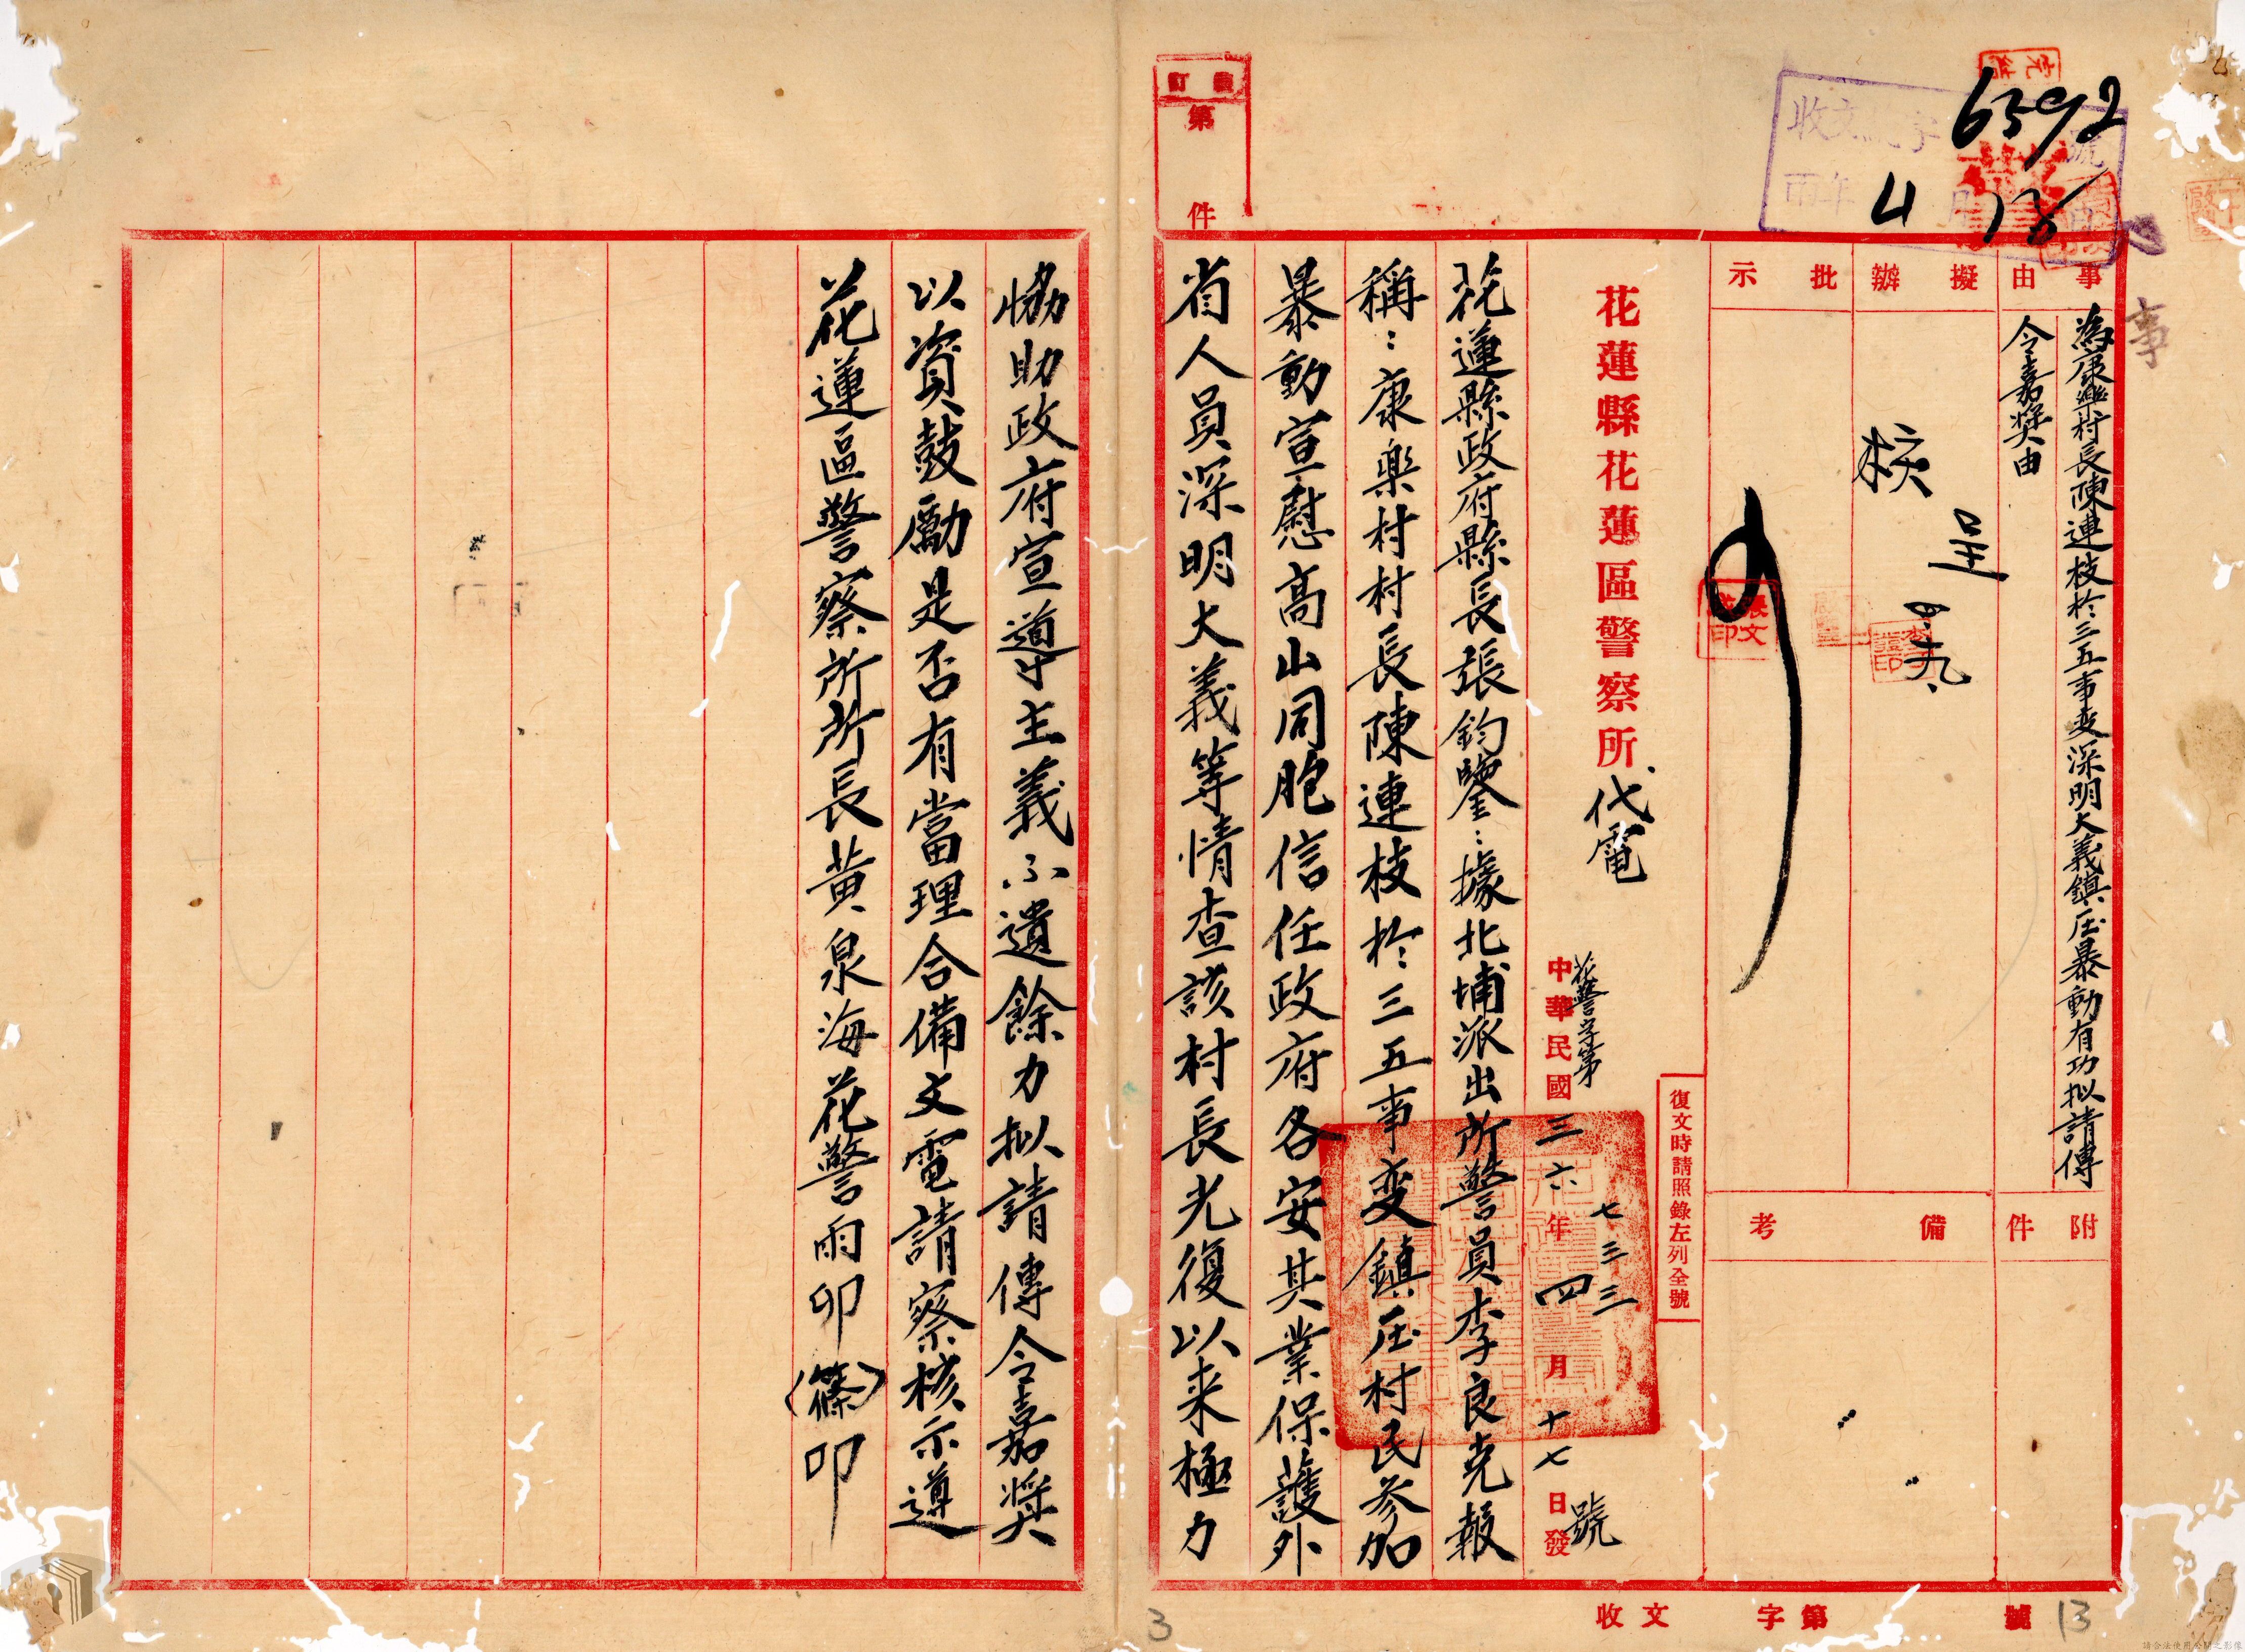 6392
收文 字 號
年 4 月 18
事由
為康樂村長陳連枝於三五事变深明大義鎮压暴動有功拟請傳
令嘉奨由
擬辦
核
呈
四、十九、
批示
附件
備考
花蓮縣花蓮區警察所代電
復文時請照錄左列全號
花警字第七三三三號
中華民國三六年四月十七日發
花蓮縣政府縣長張鈞鑒:據北埔派出所警員李良克報
稱:康樂村村長陳連枝於三五事变鎮压村民参加
暴動宣慰高山同胞信任政府各安其業保護外
省人員深明大義等情查該村長光復以来極力
恊助政府宣導主義不遺餘力拟請傳令嘉奨
以資鼓勵是否有當理合備文電請察核示遵
花蓮區警察所所長黄泉海花警雨卯(篠)印
裝訂
第 件
事
張文成印
收文 字第 號
13
3
請合法使用公開之影像